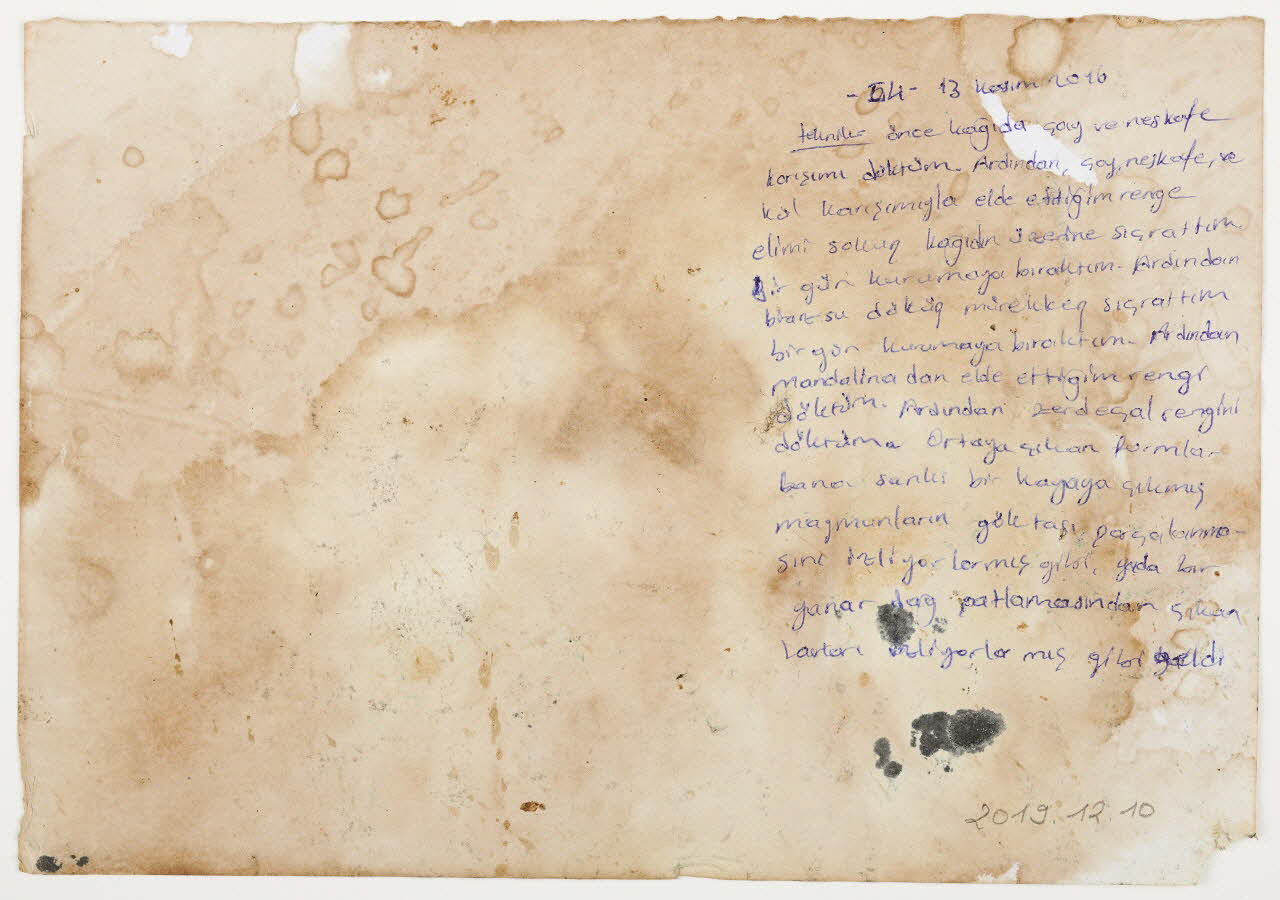 13 Kasım 2016
teknikler önce kağıda çay ve neskafe
karışımı döktüm. Ardından, çay, neskafe, ve
kül karışımıyla elde ettiğim renge
elimi sokup kağıdın üzerine sıçrattım.
Bir gün kurumaya bıraktım. Ardından
biraz su döküp mürekkep sıçrattım
bir gün kurumaya bıraktım. Ardından
mandalina dan elde ettiğim rengi
döktüm. Ardından zerdeçal rengini
döktüm. Ortaya çıkan formlar
bana sanki bir kayaya çıkmış
maymunların göktaşı parçalanma-
sını izliyorlarmış gibi, yada bir
yanar dağ patlamasından çıkan
lavları izliyorlar mış gibi geldi
2019.12.10